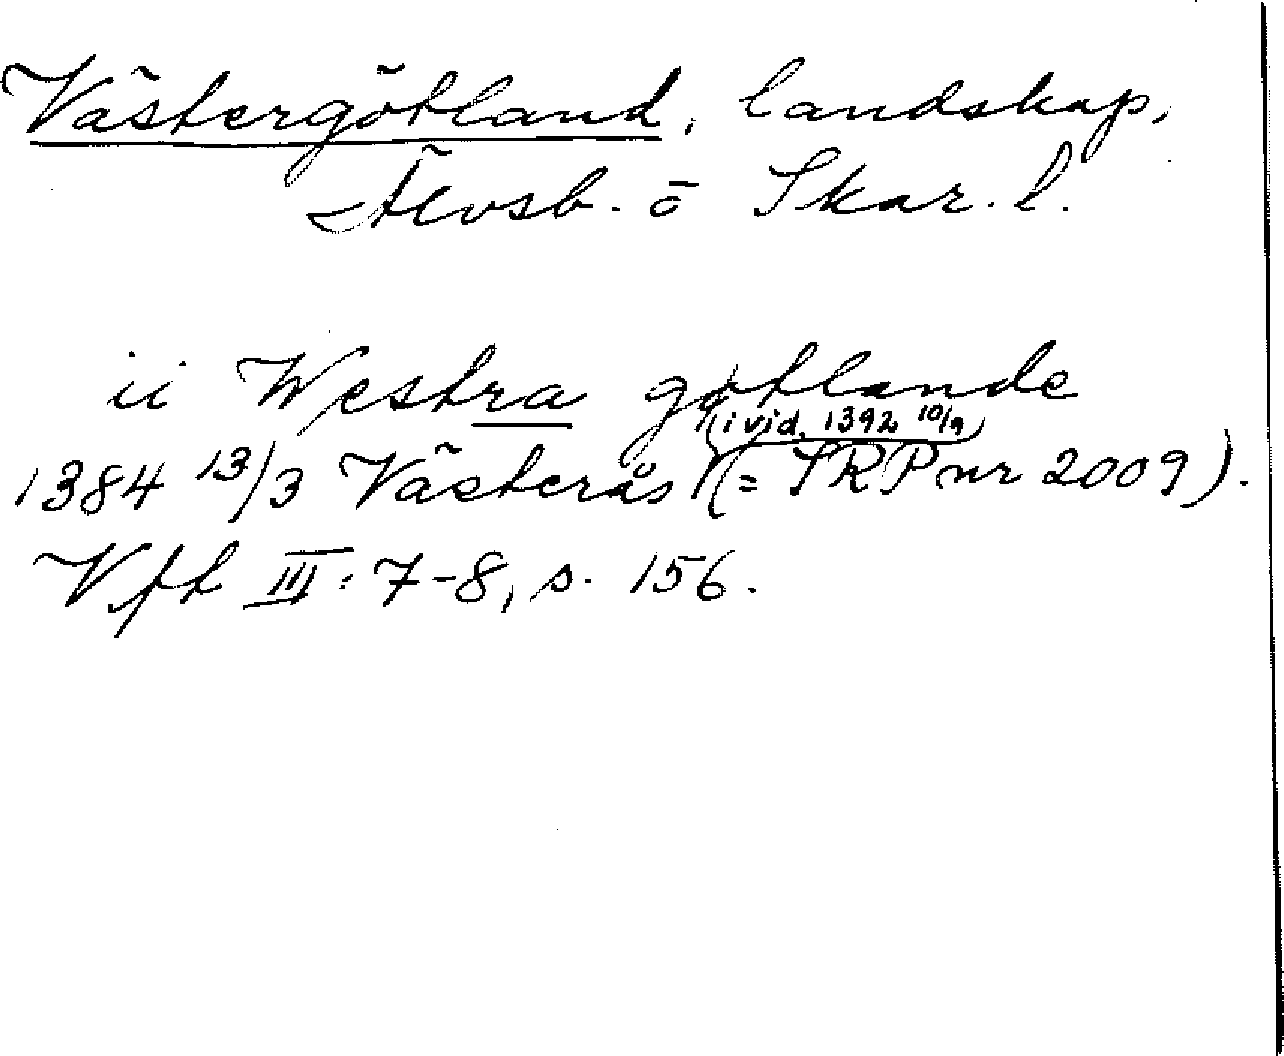 Västergötland, landskap,
Älvsb. o Skar. l.
ii Westra gøtlande
(i vid. 1392 10/9)
1384 13/3 Västerås (= SRP nr 2009).
Vft III: 7-8, s. 156.